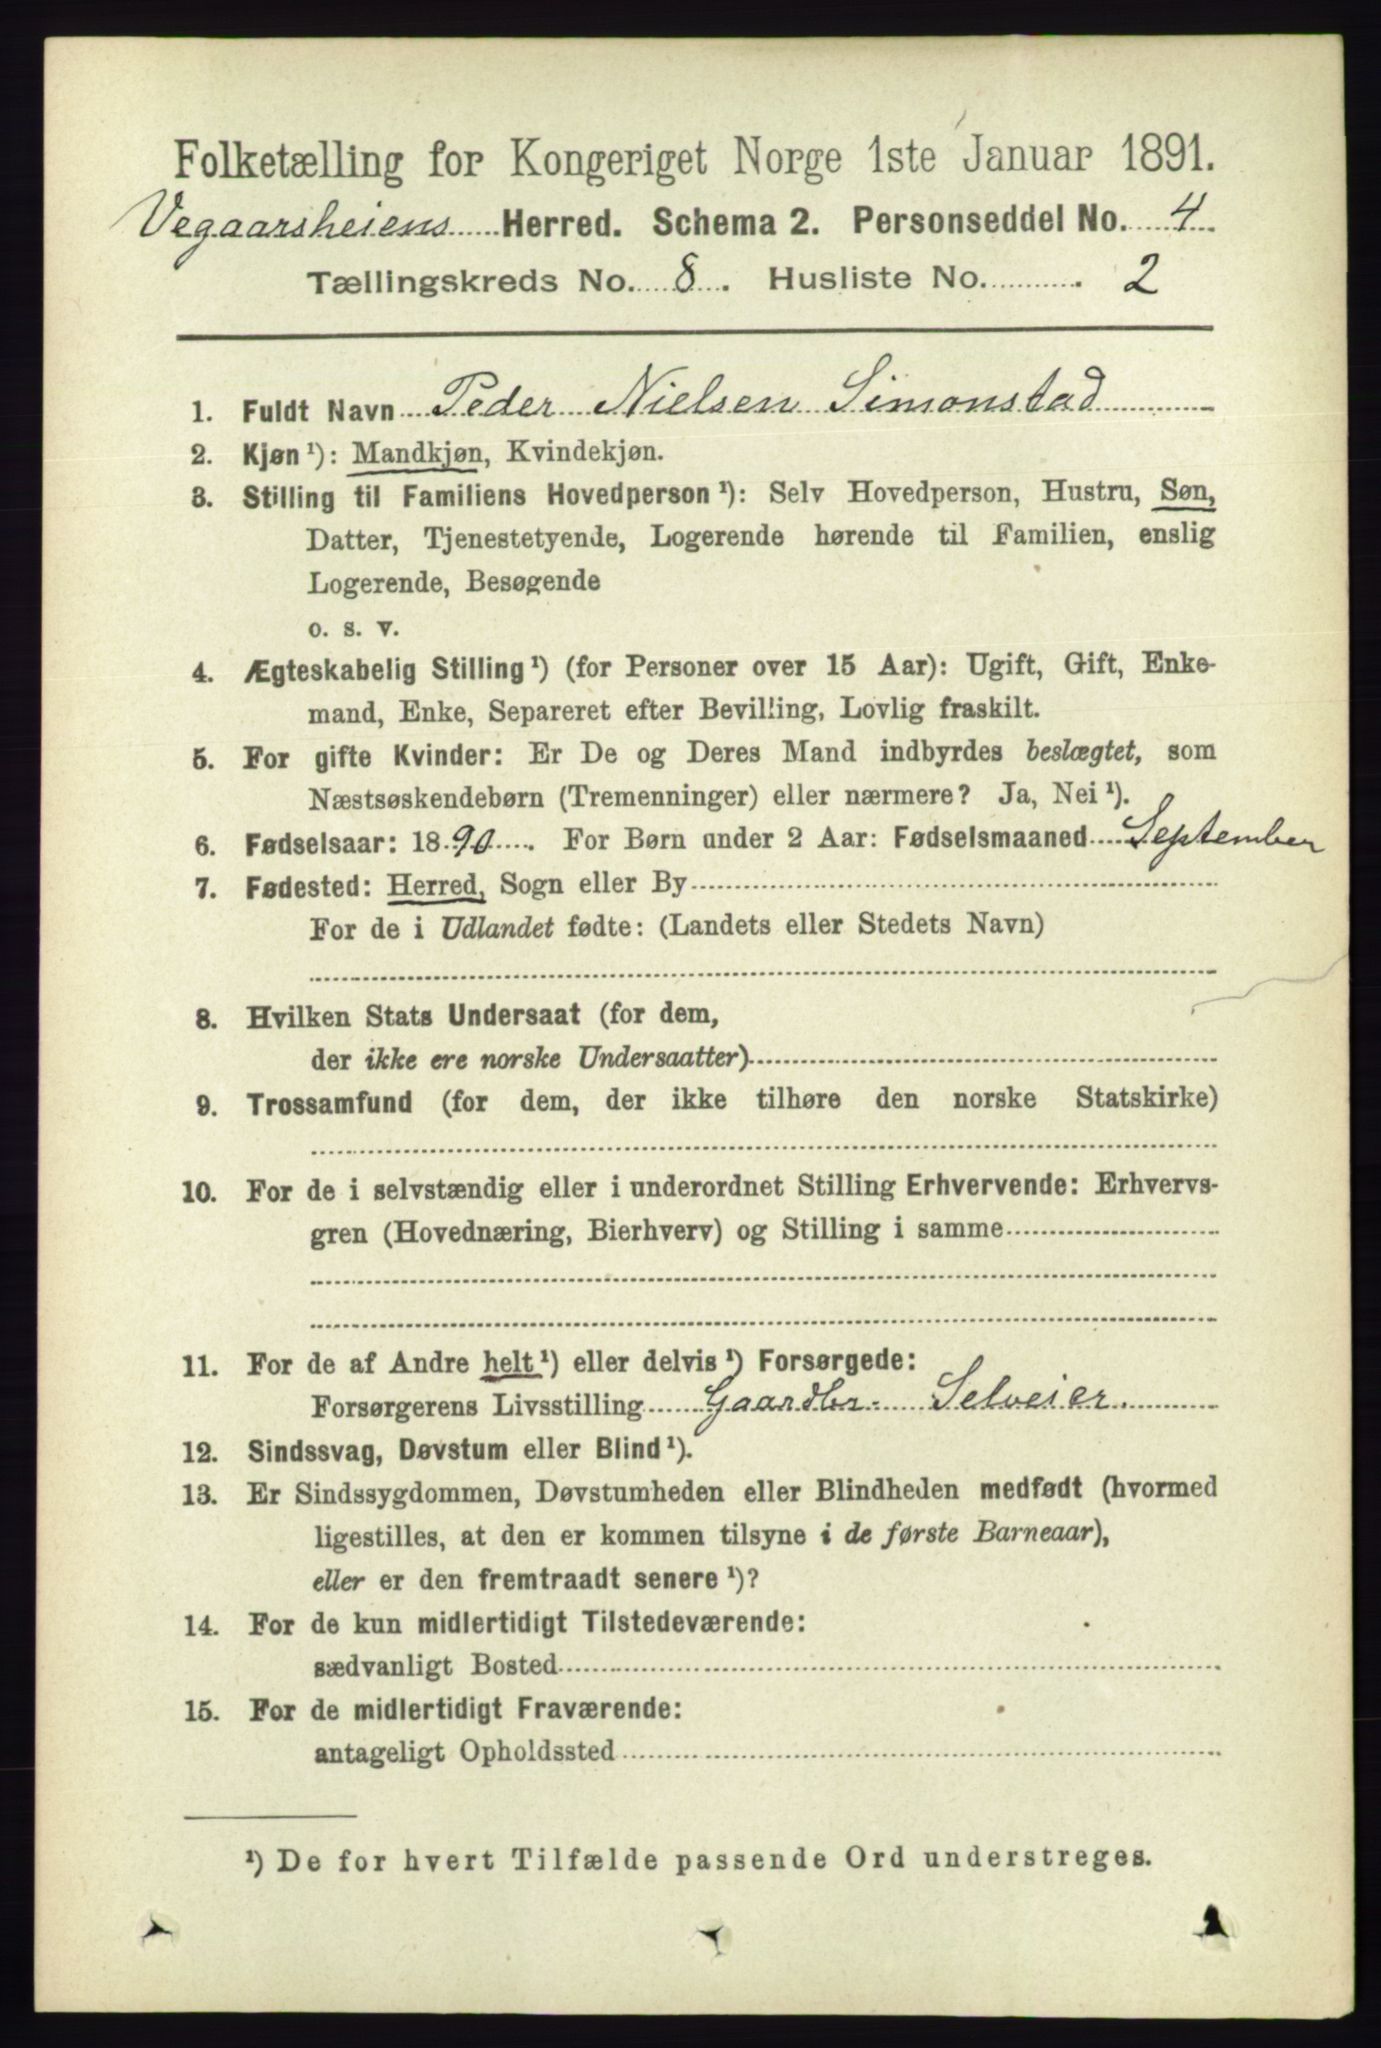 Folketælling for Kongeriget Norge 1ste Januar 1891.
Vegaarsheiens Herred. Schema 2. Personseddel No. 4
Tællingskreds No. 8. Husliste No. 2
1. Fuldt Navn Peder Nielsen Simonstad
2. Kjøn¹): Mandkjøn, Kvindekjøn.
3. Stilling til Familiens Hovedperson¹): Selv Hovedperson, Hustru, Søn,
Datter, Tjenestetyende, Logerende hørende til Familien, enslig
Logerende, Besøgende
o. s. v.
4. Ægteskabelig Stilling¹) (for Personer over 15 Aar): Ugift, Gift, Enke-
mand, Enke, Separeret efter Bevilling, Lovlig fraskilt.
5. For gifte Kvinder: Er De og Deres Mand indbyrdes beslægtet, som
Næstsøskendebørn (Tremenninger) eller nærmere? Ja, Nei¹).
6. Fødselsaar: 1890. For Børn under 2 Aar: Fødselsmaaned September
7. Fødested: Herred, Sogn eller By
For de i Udlandet fødte: (Landets eller Stedets Navn)
8. Hvilken Stats Undersaat (for dem,
der ikke ere norske Undersaatter)
9. Trossamfund (for dem, der ikke tilhøre den norske Statskirke)
10. For de i selvstændig eller i underordnet Stilling Erhvervende: Erhvervs-
gren (Hovednæring, Bierhverv) og Stilling i samme
11. For de af Andre helt¹) eller delvis¹) Forsørgede:
Forsørgerens Livsstilling Gaardbr. Selveier.
12. Sindssvag, Døvstum eller Blind¹).
13. Er Sindssygdommen, Døvstumheden eller Blindheden medfødt (hvormed
ligestilles, at den er kommen tilsyne i de første Barneaar),
eller er den fremtraadt senere¹)?
14. For de kun midlertidigt Tilstedeværende:
sædvanligt Bosted
15. For de midlertidigt Fraværende:
antageligt Opholdssted
¹) De for hvert Tilfælde passende Ord understreges.